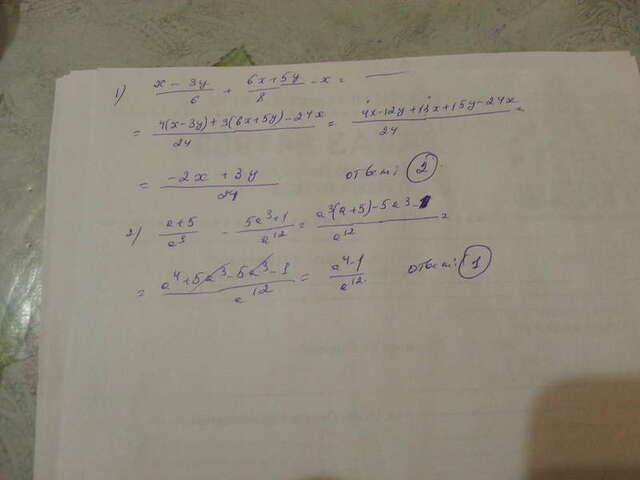 1) (x - 3y)/6 + (6x+5y)/8 - x =
= (4(x-3y)+3(6x+5y)-24x)/24 = (4x-12y+18x+15y-24x)/24 =
= (-2x + 3y)/24 ответ: 2
2) (a+5)/a³ - (5a³+1)/a¹² = (a³(a+5)-5a³-1)/a¹² =
= (a⁴+5a³-5a³-1)/a¹² = (a⁴-1)/a¹² ответ: 1